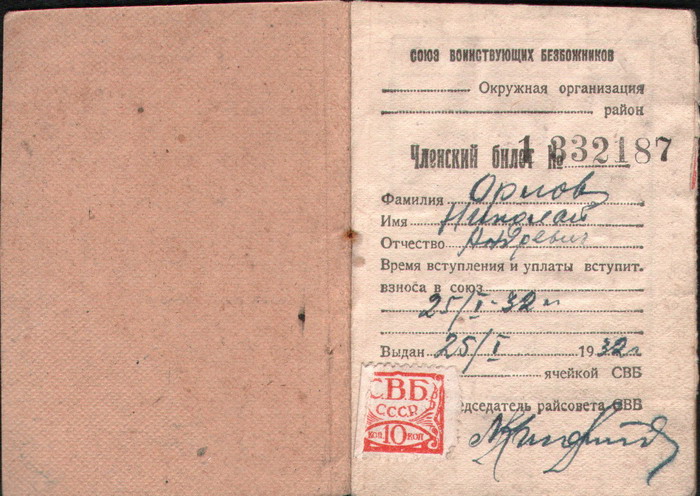 СОЮЗ ВОИНСТВУЮЩИХ БЕЗБОЖНИКОВ
Окружная организация
район
Членский билет № 1332187
Фамилия Орлов
Имя Николай
Отчество Андреевич
Время вступления и уплаты вступит.
взноса в союз
25/I-32 г.
Выдан 25/I 1932 г.
ячейкой СВБ
СВБ
СССР
коп 10 коп
едседатель райсовета СВБ